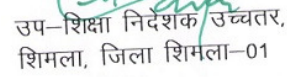 उप–शिक्षा निदेशक उच्चतर,
शिमला, जिला शिमला–01